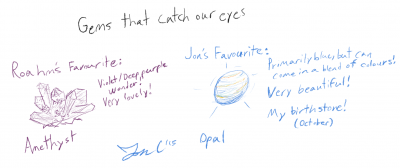 Gems that catch our eyes
Roahm's Favourite:
Violet/Deep purple
wonder.
Very lovely!
Amethyst
Jon's Favourite:
Primarily blue, but can
come in a blend of colours!
Very beautiful!
My birthstone!
(October)
Opal
Jon C '15